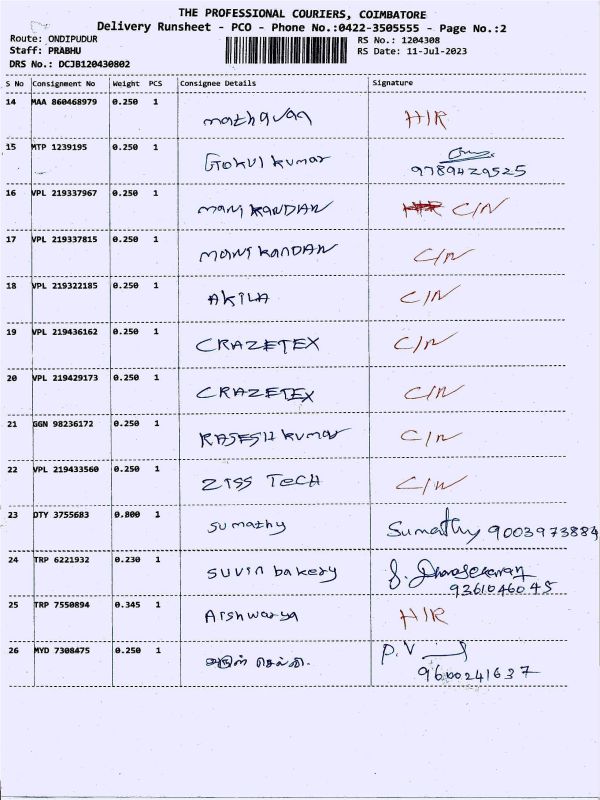 THE PROFESSIONAL COURIERS, COIMBATORE
Delivery Runsheet - PCO - Phone No.:0422-3505555 - Page No.:2
Route: ONDIPUDUR RS No.: 1204308
Staff: PRABHU RS Date: 11-Jul-2023
DRS No.: DCJB120430802
S No Consignment No Weight PCS Consignee Details Signature
14 MAA 860468979 0.250 1 mathavan H/R
15 MTP 1239195 0.250 1 Gokul kumar
9789429525
16 VPL 219337967 0.250 1 mani KANDAN C/N
17 VPL 219337815 0.250 1 mani kanDAN C/N
18 VPL 219322185 0.250 1 AKILA C/N
19 VPL 219436162 0.250 1 CRAZETEX C/N
20 VPL 219429173 0.250 1 CRAZETEX C/N
21 GGN 98236172 0.250 1 RAJESH kumar C/N
22 VPL 219433560 0.250 1 ZISS TECH C/N
23 DTY 3755683 0.800 1 sumathy Sumathy 9003973884
24 TRP 6221932 0.230 1 suvin bakery
9361046045
25 TRP 7550894 0.345 1 Aishwarya H/R
26 MYD 7308475 0.250 1 அருள் செல்வி. P.V
9600241637